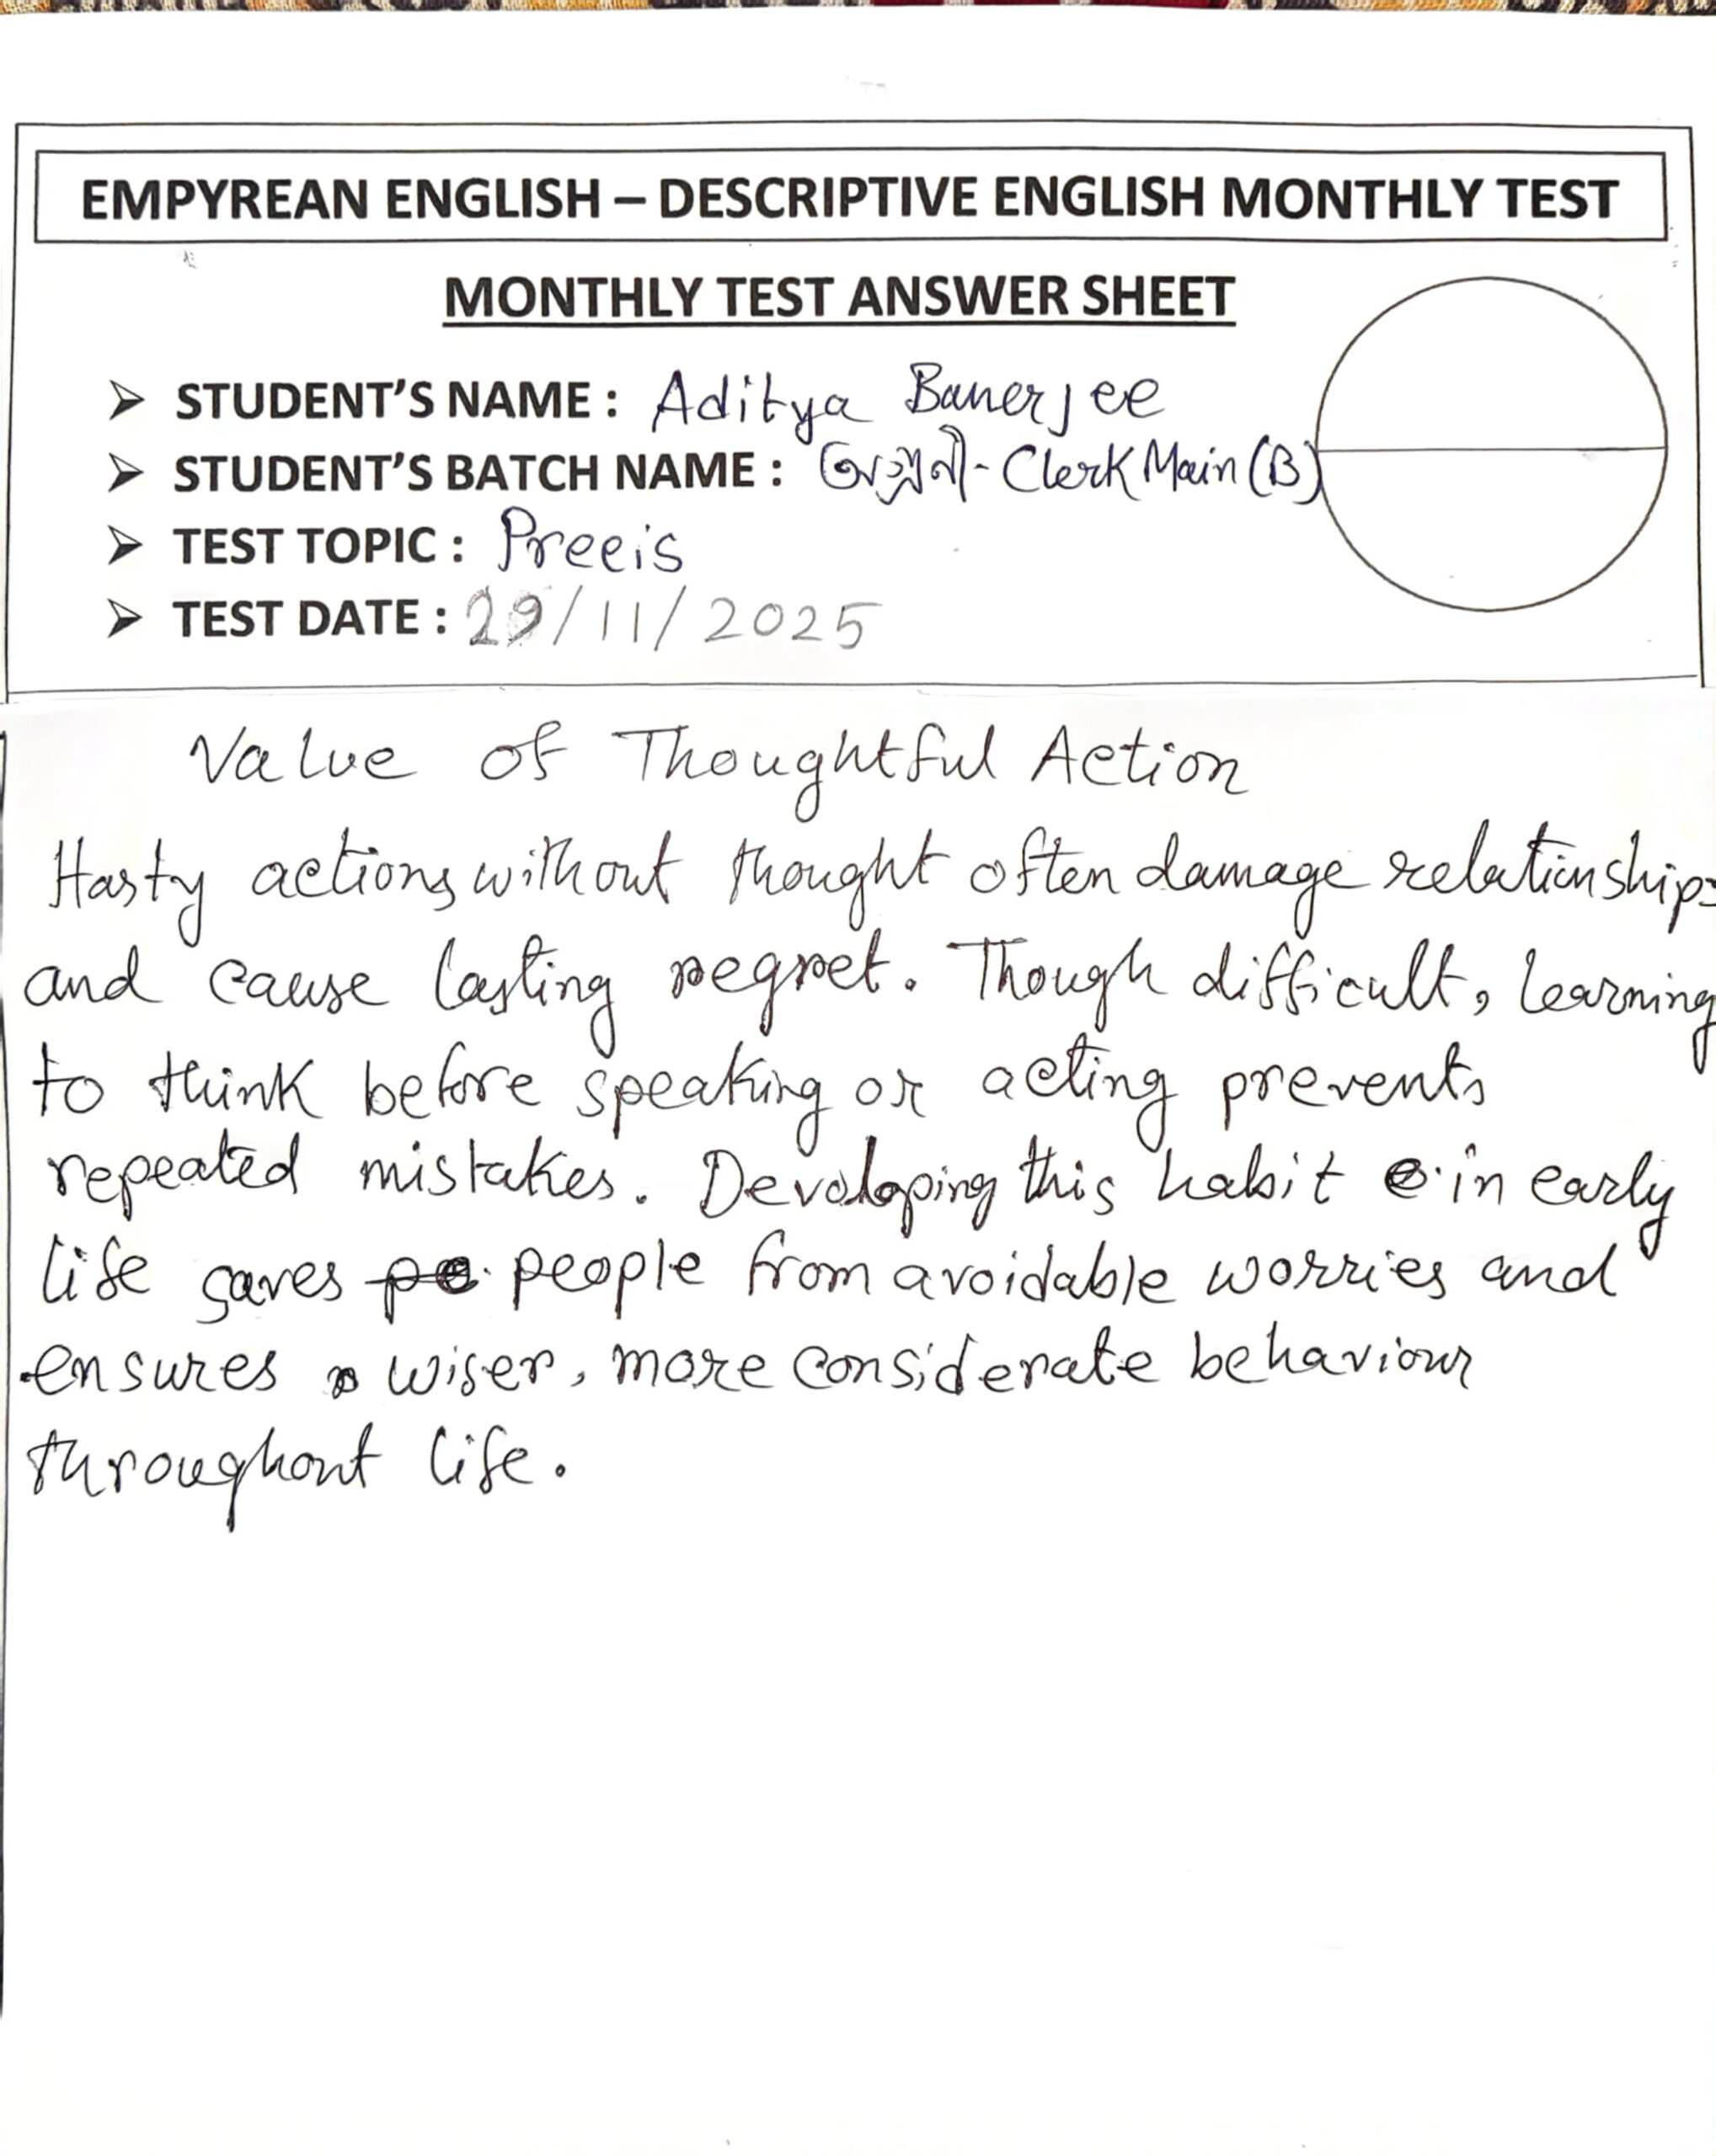 EMPYREAN ENGLISH – DESCRIPTIVE ENGLISH MONTHLY TEST
MONTHLY TEST ANSWER SHEET
➢ STUDENT'S NAME : Aditya Banerjee
➢ STUDENT'S BATCH NAME : - Clerk Main (B)
➢ TEST TOPIC : Precis
➢ TEST DATE : 29/11/2025
Value of Thoughtful Action
Hasty actions without thought often damage relationships
and cause lasting regret. Though difficult, learning
to think before speaking or acting prevents
repeated mistakes. Developing this habit in early
life saves people from avoidable worries and
ensures wiser, more considerate behaviour
throughout life.